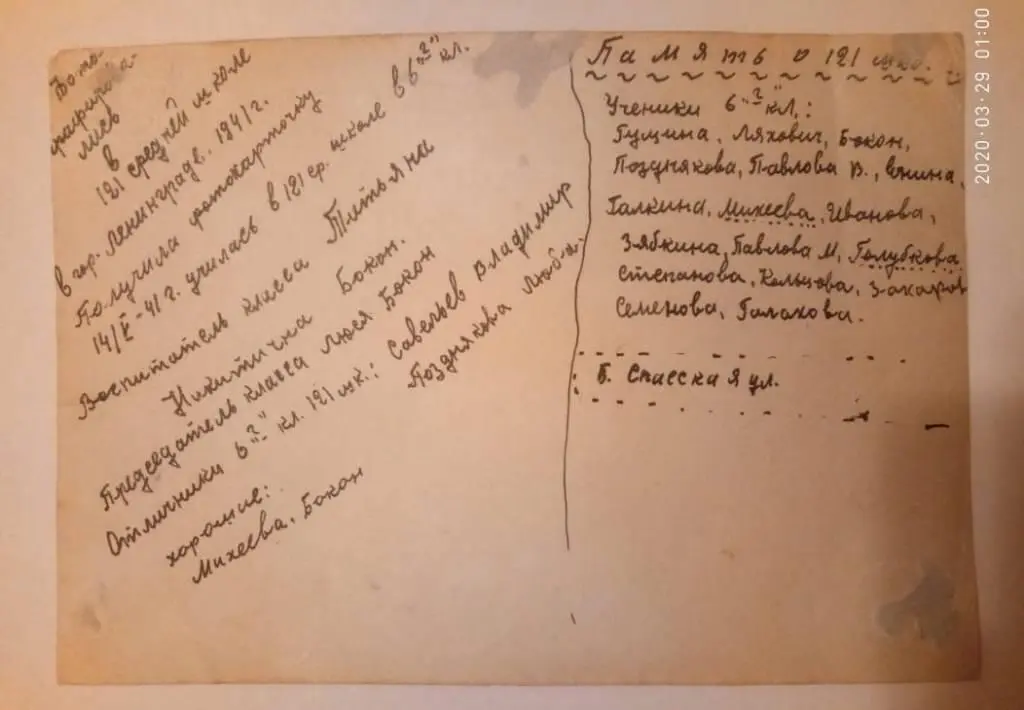 Фото-
графирова-
лись
в
121 средней школе
в гор. Ленинграде. 1941 г.
Получила фотокарточку
14/V - 41 г. училась в 121 ср. школе в 6 "2" кл.
Воспитатель класса Татьяна
Никитична Бокон.
Председатель класса Люся Бокон
Отличники 6 "2" кл. 121 шк.: Савельев Владимир
Позднякова Люба.
хорошие:
Михеева, Бокон
Память о 121 шко.
Ученики 6 "2" кл.:
Гущина, Ляхович, Бокон,
Позднякова, Павлова В.,
Галкина, Михеева, Иванова,
Зябкина, Павлова М, Голубкова
Степанова, Кольцова, Захаров
Семенова, Галахова.
Б. Спасская ул.
2020·03·29 01:00